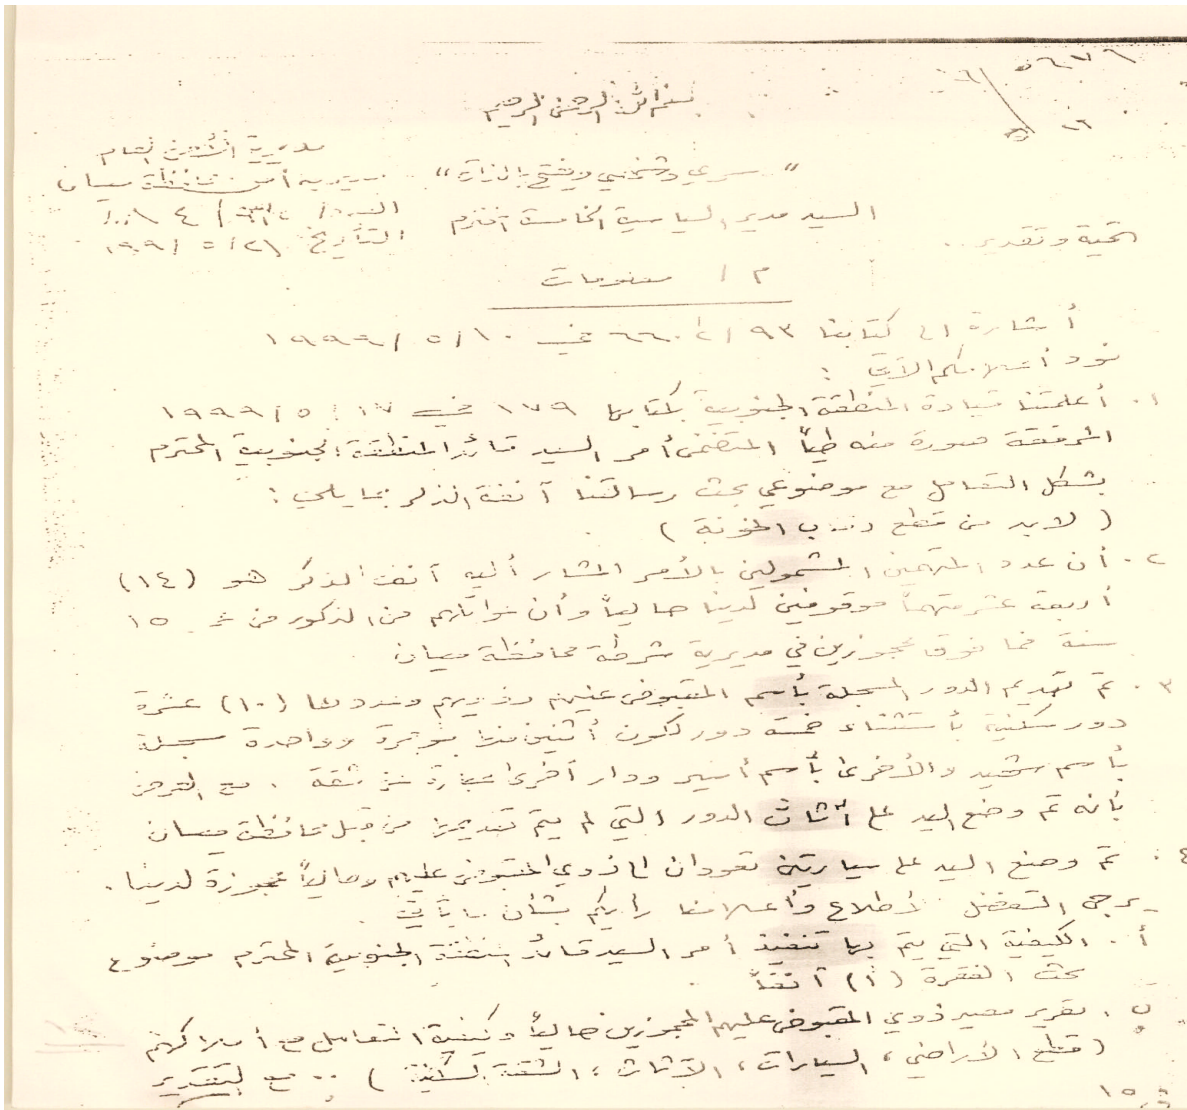 ٥٦٧٦
بسم الله الرحمن الرحيم
مديرية الأمن العام
"سري وشخصي ويفتح بالذات" مديرية أمن محافظة ميسان
السيد مدير السياسية الخامسة المحترم
التأريخ ٢٦/٥/١٩٩
تحية وتقدير..
م/ معلومات
أشارة الى كتابنا ٦٦٠٢/٩٣ في ١٠/٥/١٩٩٩
نود أعلامكم الآتي :
١. أعلمتنا قيادة المنطقة الجنوبية بكتابها ١٧٩ في ١٧/٥/١٩٩٩
المرفقة صورة منه طياً المتضمن أمر السيد قائد المنطقة الجنوبية المحترم
بشكل التعامل مع موضوعي بحث رسالتنا آنفة الذكر بما يلي :
( لابد من قطع دابر الخونة )
٢. أن عدد المتهمين المشمولين بالأمر المشار أليه آنف الذكر هو (١٤)
أربعة عشر متهماً موقوفين لدينا حالياً وأن عوائلهم من الذكور من ١٥
سنة فما فوق محجوزين في مديرية شرطة محافظة ميسان
٣. تم تهديم الدور المسجلة بأسم المقبوض عليهم وذويهم وعددها (١٠) عشرة
دور سكنية بأستثناء خمسة دور لكون أثنين منها مؤجرة وواحدة مسجلة
بأسم شهيد والأخرى بأسم أسير ودار أخرى عبارة عن شقة . مع العرض
بأنه تم وضع اليد على أثاث الدور التي لم يتم تهديمها من قبل محافظة ميسان
٤. تم وضع اليد على سيارتين تعودان الى ذوي المقبوض عليهم وحالياً محجوزة لدينا.
يرجى التفضل لأطلاع وأعلامنا رأيكم بشأن ما يأتي .
أ. الكيفية التي يتم بها تنفيذ أمر السيد قائد المنطقة الجنوبية المحترم موضوع
بحث الفقرة (١) آنفاً
ب. تقرير مصير ذوي المقبوض عليهم المحجوزين حالياً وكيفية التعامل مع أملاكهم
(قطع الأراضي، السيارات، الأثاث، الشقة السكنية) .. مع التقدير